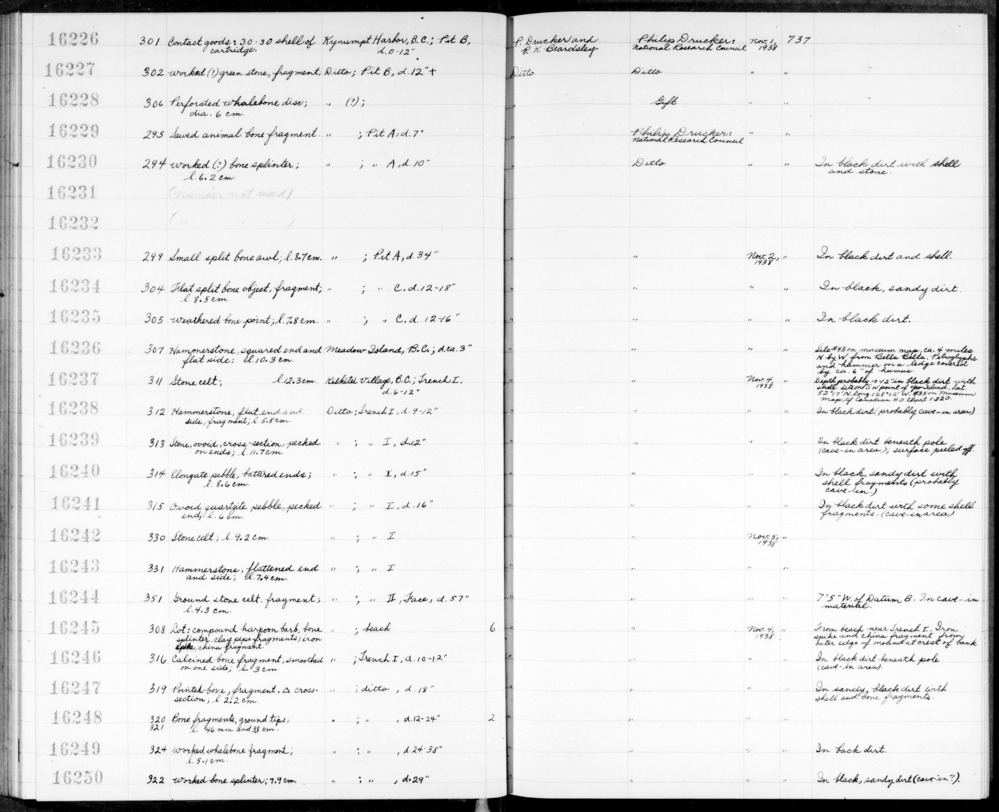 16226 301 Contact goods: 30-30 shell of Kynumpt Harbor, B.C.; Pit B, P. Drucker and Philip Drucker: Nov. 1, 737
cartridge d. 0-12" R. K. Beardsley National Research Council 1938
16227 302 Worked (?) green stone, fragment Ditto; Pit B, d. 12"+ Ditto Ditto " "
16228 306 Perforated whalebone disc; " (?); " Gift " "
dia. 6 cm.
16229 295 Sawed animal bone fragment " ; Pit A, d. 7" " Philip Drucker: " "
National Research Council
16230 294 Worked (?) bone splinter; " ; " A, d. 10" " Ditto " " In black dirt with shell
l. 6.2 cm. and stone.
16231 (number not used)
16232 ( " " " )
16233 299 Small split bone awl; l. 8.7 cm. " ; Pit A, d. 34" " " Nov. 2, " In black dirt and shell.
1938
16234 304 Flat split bone object, fragment; " ; " C. d. 12-18" " " " " In black, sandy dirt.
l. 8.5 cm
16235 305 Weathered bone point; l. 7.8 cm. " ; " C. d. 12-16" " " " " In black dirt.
16236 307 Hammerstone, squared end and Meadow Island, B.C.; d. ca. 3" " " " " Site #43 on museum map, ca. 4 miles
flat side; l. 10.3 cm. N by W from Bella Bella. Petroglyphs
and hammer on a ledge covered
by ca. 6" of humus
16237 311 Stone celt; l. 12.3 cm. Kilkitei Village, B.C.; Trench I, " " Nov. 4, " Depth probably 10-12" in black dirt with
d. 6-12" 1938 shell
map
16238 312 Hammerstone, flat end and Ditto; Trench I, d. 9-12" " " " " In black dirt (probably cave-in area)
side, fragment; l. 5.8 cm.
16239 313 Stone, ovoid, cross-section, pecked " ; " I, d. 12" " " " " In black dirt beneath pole
on ends; l. 11.7 cm (cave-in area); surface peeled off.
16240 314 Elongate pebble, battered ends; " ; " I, d. 15" " " " " In black, sandy dirt with
l. 8.6 cm. shell fragments (probably
cave-in)
16241 315 Ovoid quartzite pebble, pecked " ; " I. d. 16" " " " " In black dirt with some shell
end; l. 6 cm. fragments. (cave-in area)
16242 330 Stone celt; l. 9.2 cm. " ; " I " " Nov. 5, "
1938
16243 331 Hammerstone, flattened end " ; " I " " " "
and side; l. 7.4 cm.
16244 351 Ground stone celt, fragment; " ; " II, Face, d. 57" " " " " 7'5" W. of Datum B. In cave-in
l. 4.3 cm. material.
16245 308 Lot: compound harpoon barb, bone " ; beach 6 " " Nov. 4, " From beach near Trench I. Iron
splinter, clay pipe fragments; iron 1938 spike and china fragment from
spike, china fragment outer edge of mound at crest of bank
16246 316 Calcined bone fragment, smoothed " ; Trench I, d. 10-12" " " " " In black dirt beneath pole
on one side; l. 3 cm (cave-in area)
16247 319 Pointed bone, fragment, Δ cross- " ; ditto , d. 18" " " " " In sandy, black dirt with
section; l. 2.2 cm. shell and bone fragments.
16248 320 Bone fragments, ground tips; " ; " , d. 12-24" 2 " " " "
321 l. 46 mm. and 38 cm.
16249 324 Worked whalebone fragment; " ; " , d. 24-38" " " " " In back dirt.
l. 5.1 cm.
16250 322 Worked bone splinter; 7.9 cm. " ; " , d. 29" " " " " In black, sandy dirt (cave-in?).